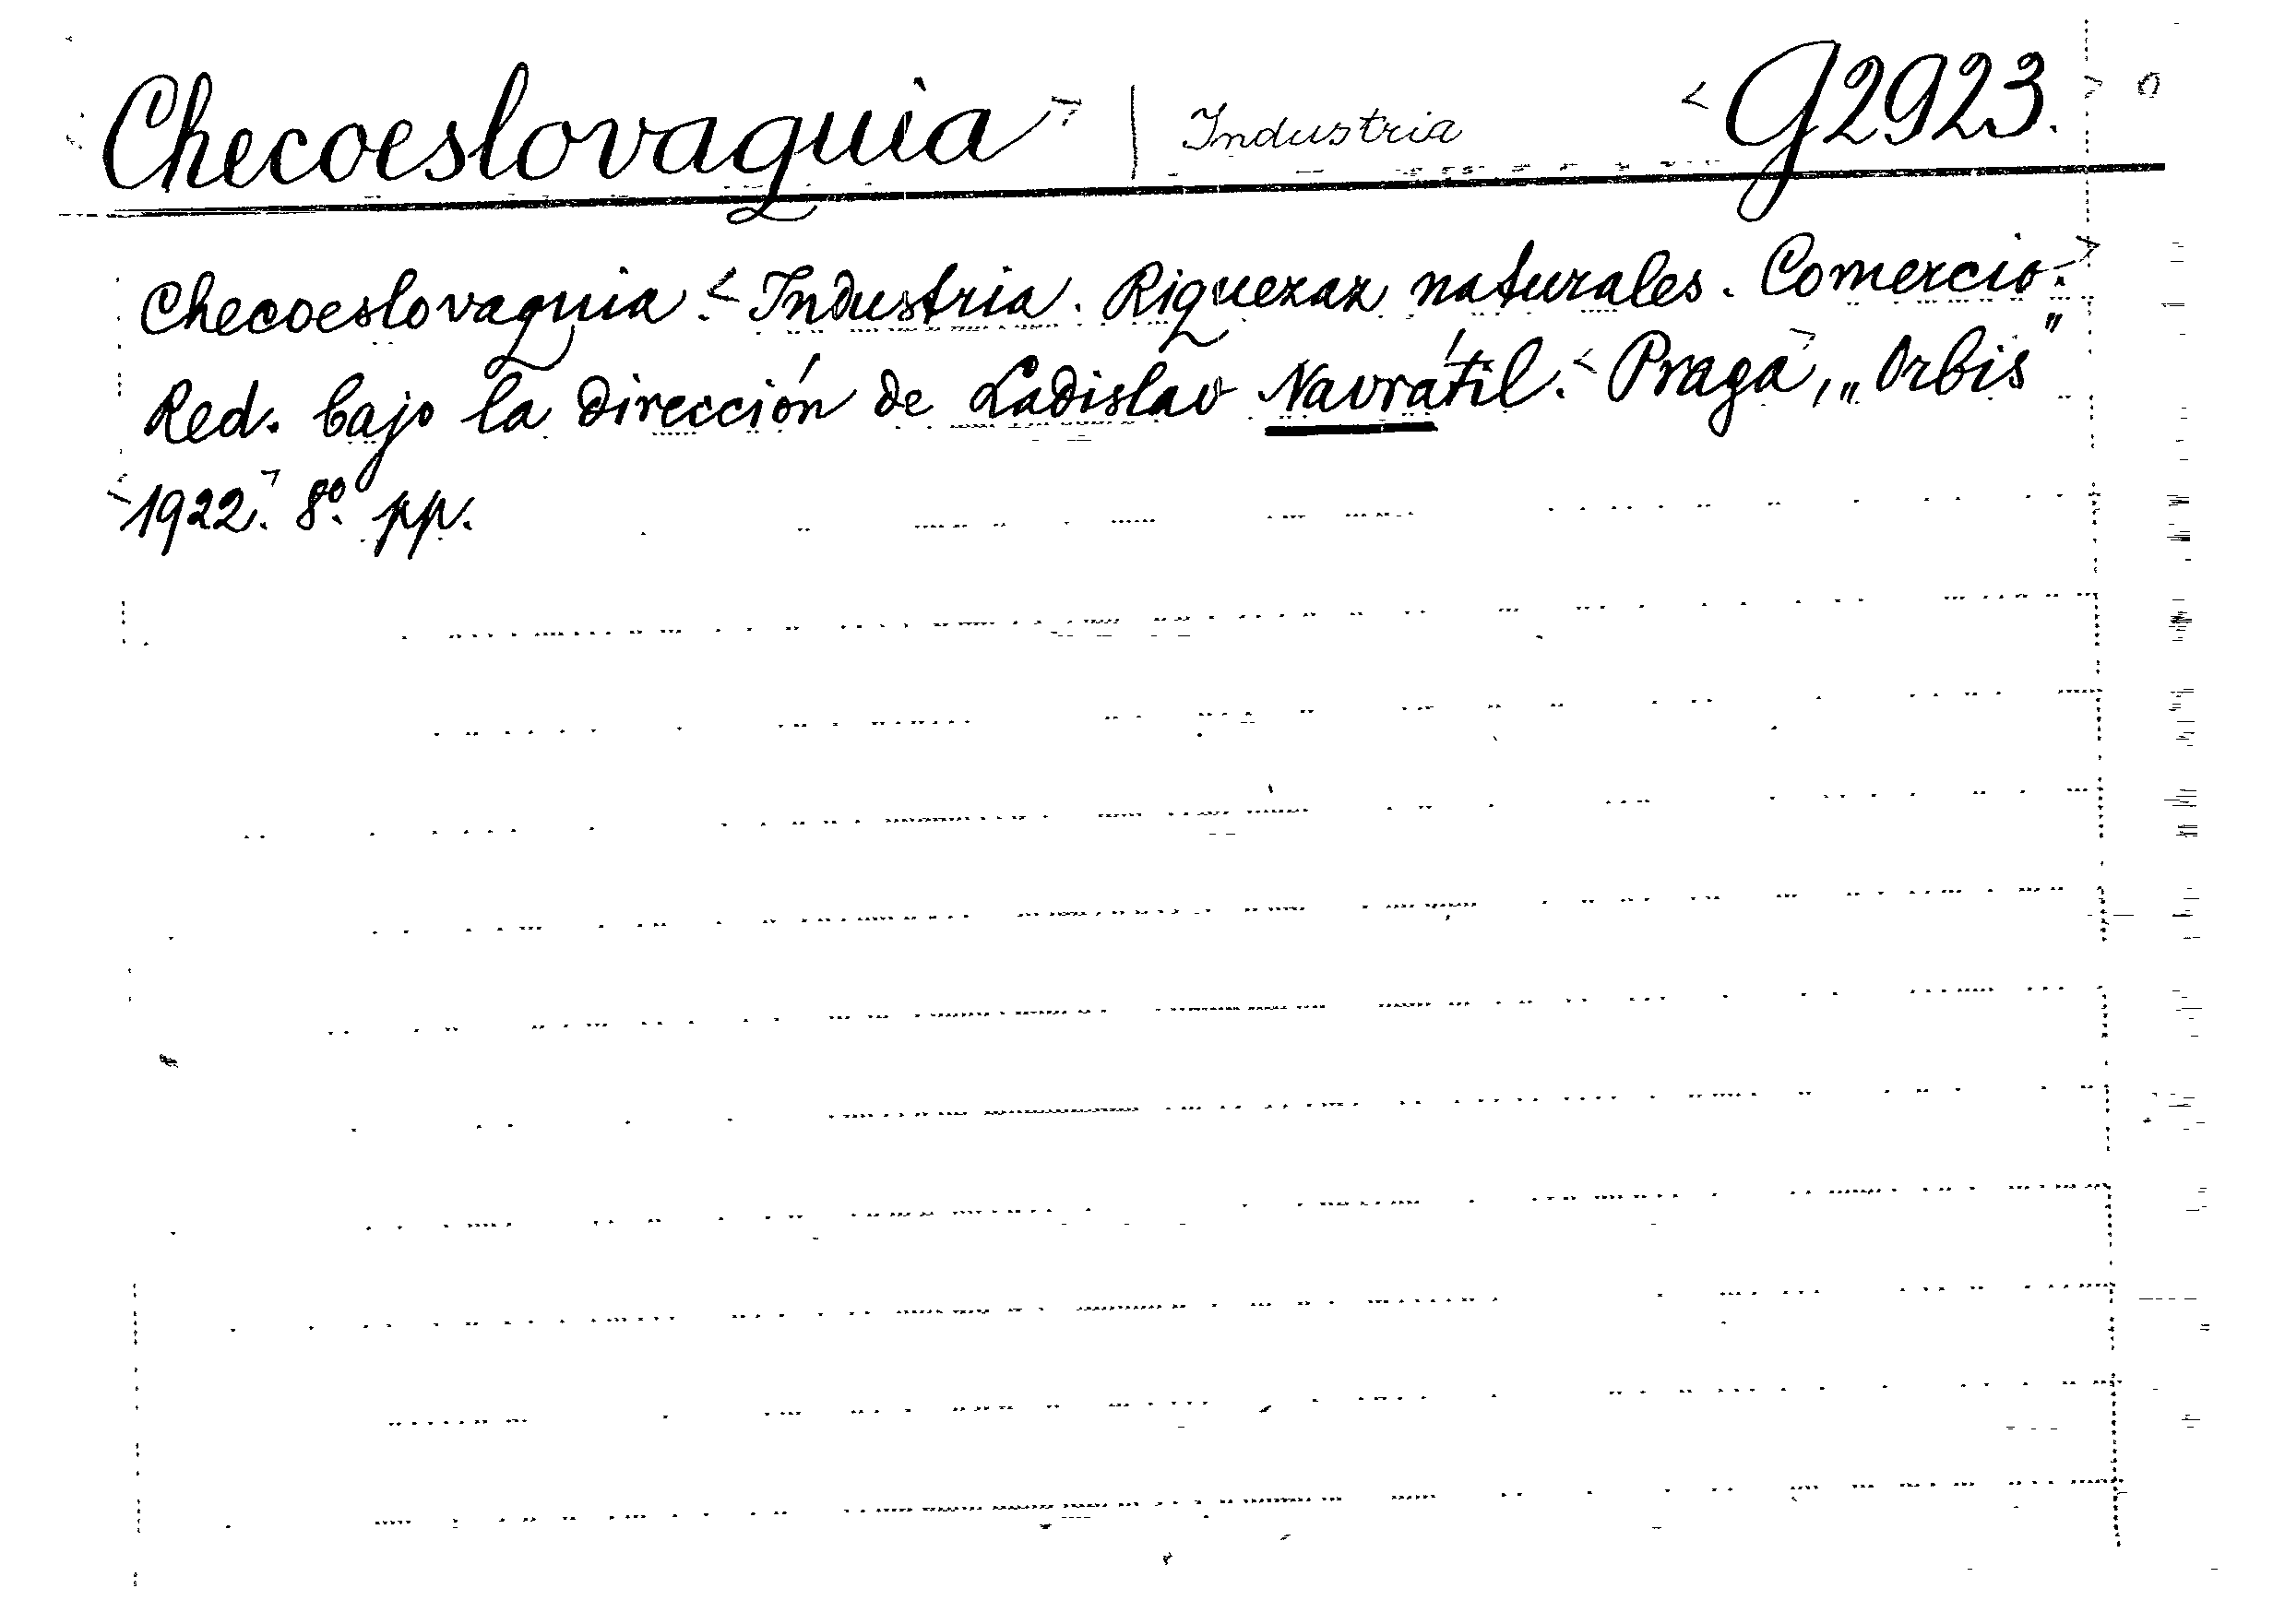 Checoeslovaquia | Industria G2923.
Checoeslovaquia. Industria. Riquezaz naturales. Comercio.
Red. bajo la dirección de Ladislav Navrátil. Praga, „Orbis"
1922. 8º. pp.